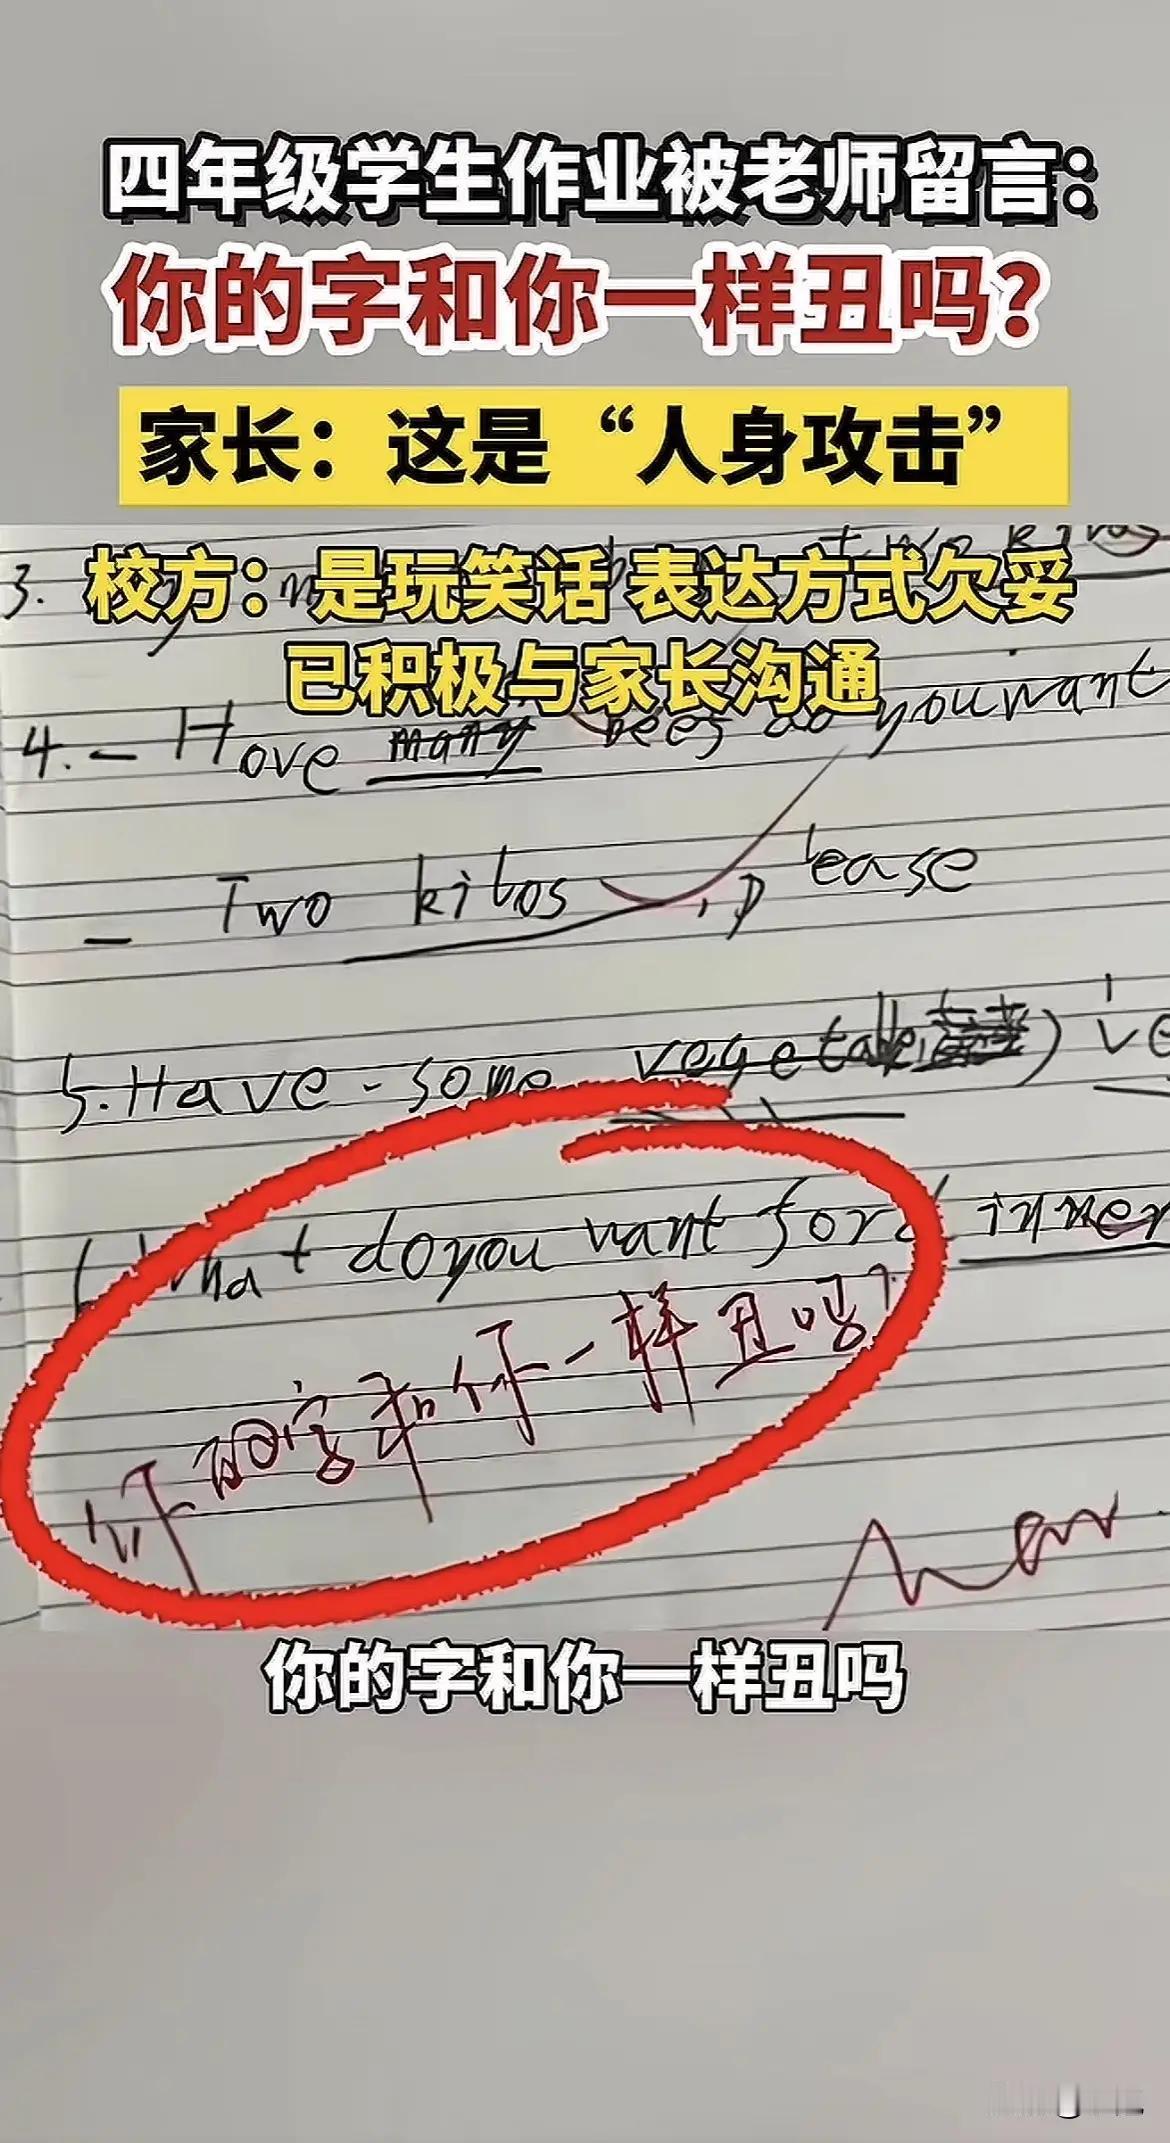 四年级学生作业被老师留言：
你的字和你一样丑吗？
家长：这是“人身攻击”
校方：是玩笑话 表达方式欠妥
已积极与家长沟通
3.
4. - Hove many bees do you want
- Two kilos, please
5. Have some vegetable
What do you want for dinner
你的字和你一样丑吗？
你的字和你一样丑吗